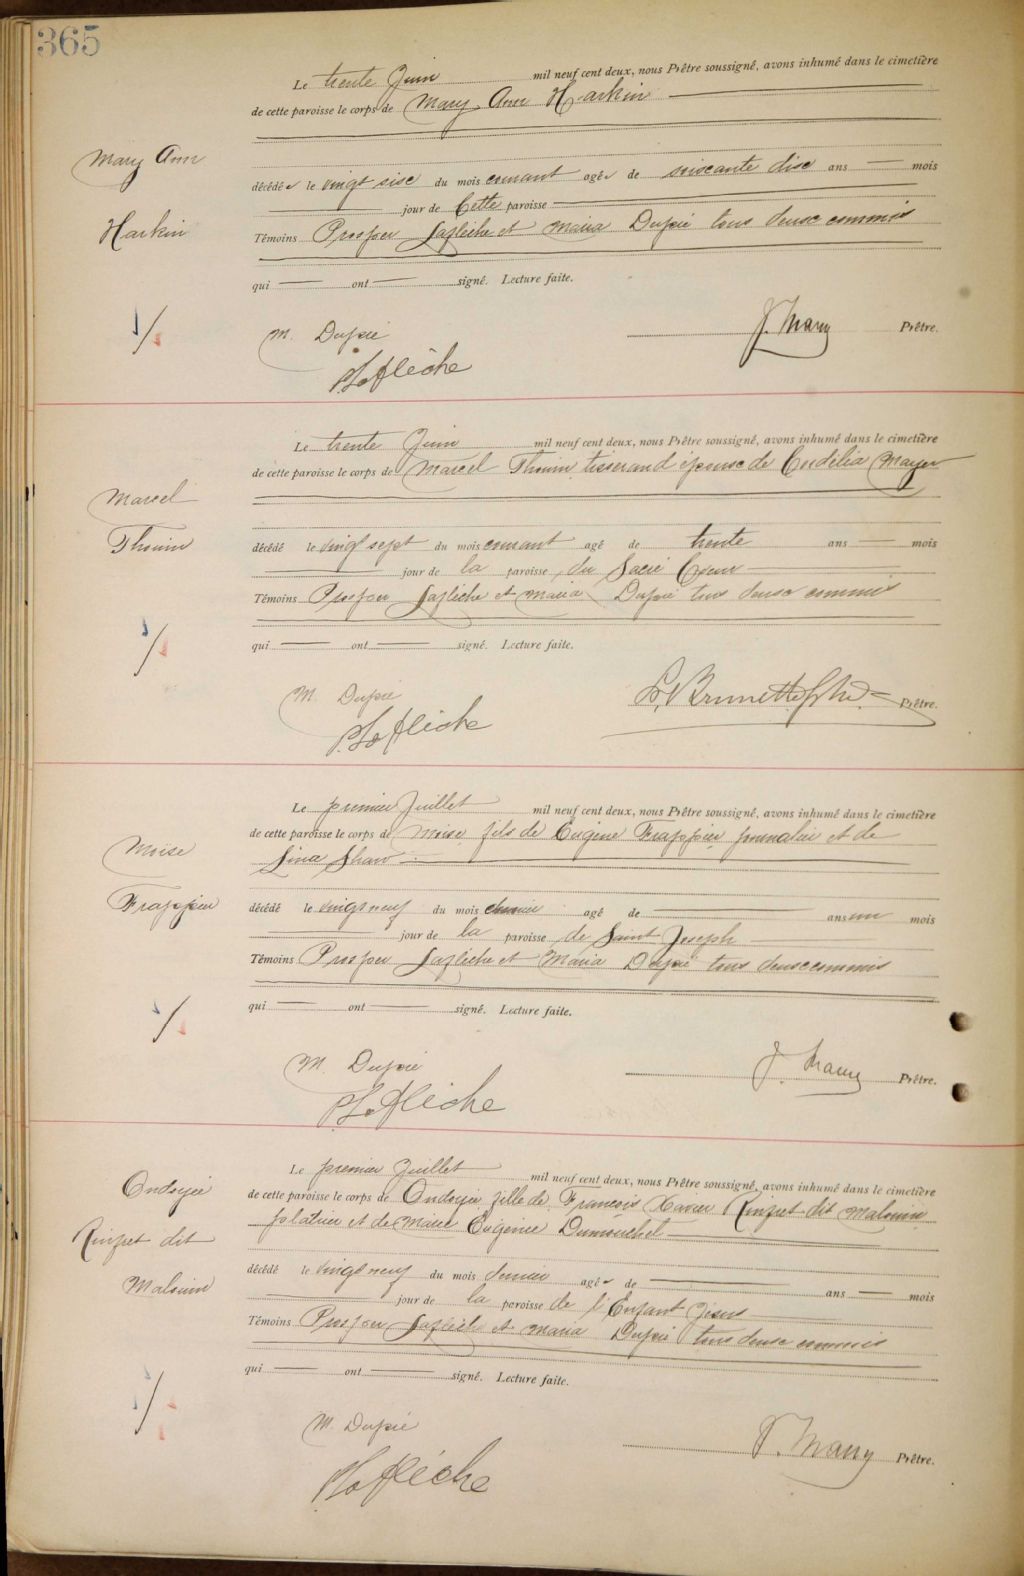 365
Le trente Juin mil neuf cent deux, nous Prêtre soussigné, avons inhumé dans le cimetière
de cette paroisse le corps de Mary Ann Harkin
Mary Ann
décédée le vingt sisc du mois courant agée de soiscante disc ans mois
jour de Cette paroisse
Harkin
Témoins Prosper Laflèche et Maria Dupré tous deusc commis
qui ont signé. Lecture faite.
M. Dupré
J. Prêtre.
P. Laflèche
Le trente Juin mil neuf cent deux, nous Prêtre soussigné, avons inhumé dans le cimetière
de cette paroisse le corps de Marcel Thouin tisserand épouse de Cordélia Mayer
Marcel
Thouin
décédé le vingt sept du mois courant agé de trente ans mois
jour de la paroisse du Sacré Coeur
Témoins Prosper Laflèche et Maria Dupré tous deusc commis
qui ont signé. Lecture faite.
M. Dupré
Prêtre.
P. Laflèche
Le premier Juillet mil neuf cent deux, nous Prêtre soussigné, avons inhumé dans le cimetière
de cette paroisse le corps de Moïse fils de Eugène Frappier journalier et de
Moïse
Lina Shaw
Frappier
décédé le vingt neuf du mois dernier agé de ans un mois
jour de la paroisse de Saint Joseph
Témoins Prosper Laflèche et Maria Dupré tous deusc commis
qui ont signé. Lecture faite.
M. Dupré
J. Prêtre.
P. Laflèche
Le premier Juillet mil neuf cent deux, nous Prêtre soussigné, avons inhumé dans le cimetière
Ondoyée
de cette paroisse le corps de Ondoyée fille de Francois Xavier Rinfret dit Malouin
Rinfret dit
platrier et de Marie Eugénie Dumouchel
Malouin
décédé le vingt neuf du mois dernier agée de ans mois
jour de la paroisse de l'Enfant Jésus
Témoins Prosper Laflèche et Maria Dupré tous deusc commis
qui ont signé. Lecture faite.
M. Dupré
J. Prêtre.
P. Laflèche